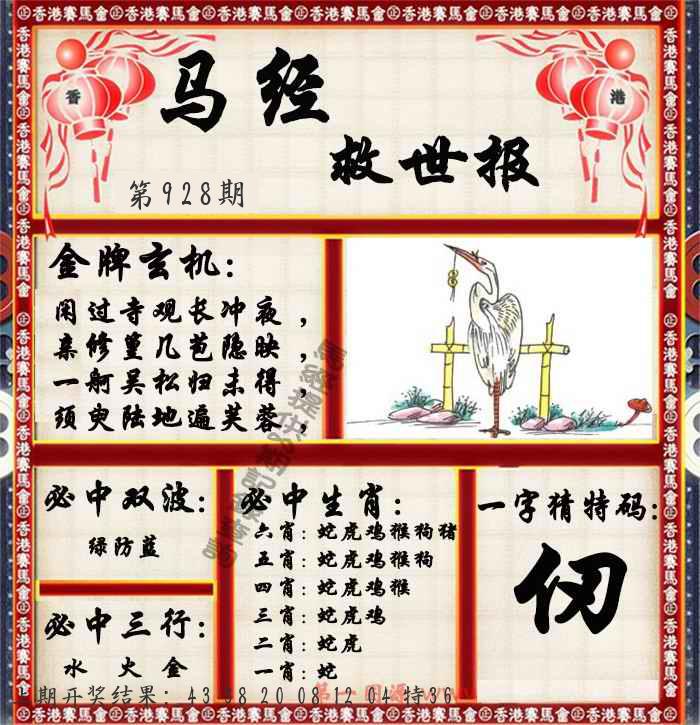 香港賽馬會
香
港
马经
救世报
第928期
金牌玄机:
闲过寺观长冲夜,
亲修篁几苞隐映,
一舸吴松归未得,
须臾陆地遍芙蓉,
必中双波:
绿防蓝
必中三行:
水 火 金
必中生肖:
六肖:蛇虎鸡猴狗猪
五肖:蛇虎鸡猴狗
四肖:蛇虎鸡猴
三肖:蛇虎鸡
二肖:蛇虎
一肖:蛇
一字猜特码:
仞
期开奖结果:43 38 20 08 12 04 特36